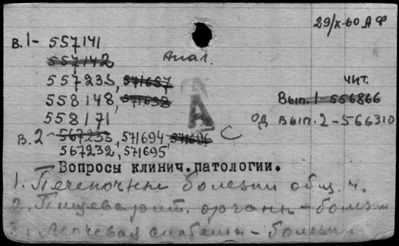 29/X-60 А Ф
в.1- 557141
557142 Анал.
557235, 571687 чит.
558148, 571638 Вып. 1 556866
558171 А од вып.2-566310
в.2 567235, 571694 571696 С
567232, 571695
Вопросы клинич.патологии.
1. Печеночные болезни общ. ч.
2. Пищеварит. органы - болезни
3. Мочевая система - болезни